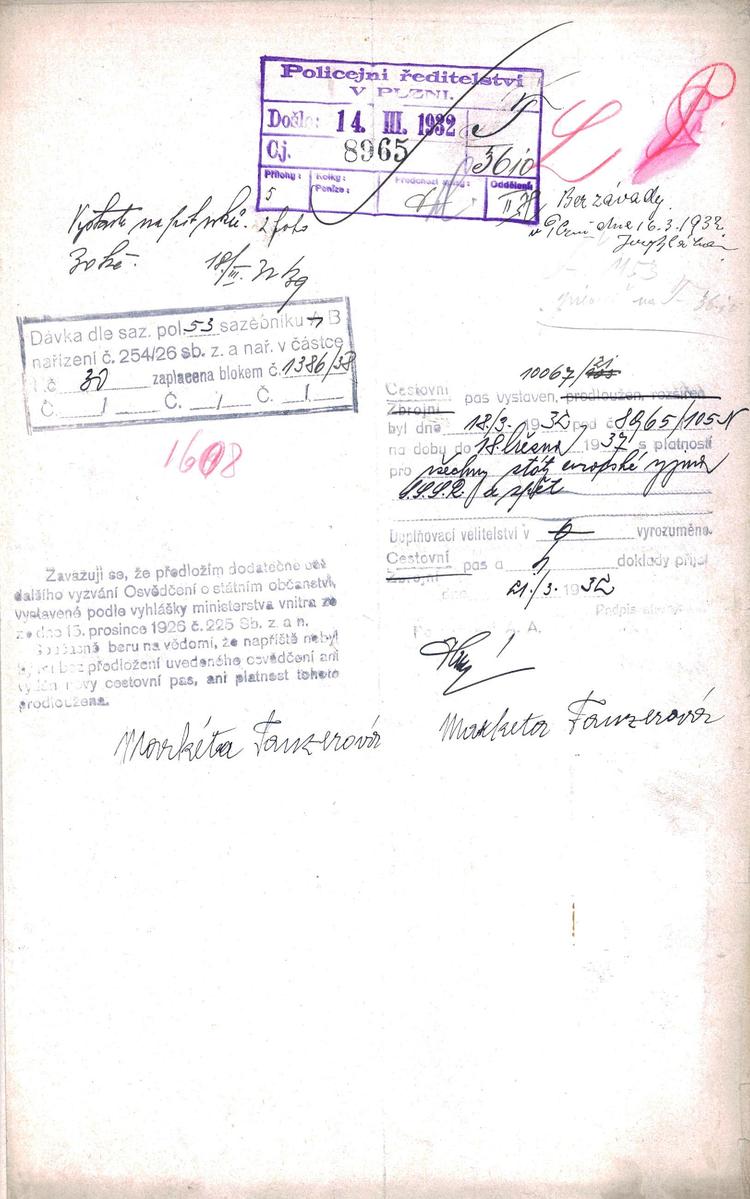 Policejní ředitelství
V PLZNI.
Došlo: 14. III. 1932
Čj. 8965
T
3610
Přílohy: 5
Kolky:
Peníze:
Předchozí
Oddělení
II
2 foto
Bez závady.
v Plzni dne 16.3.1932.
18/III. 32
Dávka dle saz. pol. 53 sazebníku A B
nařízení č. 254/26 sb. z. a nař. v částce
Kč 30 zaplacena blokem č. 1386/38
Č. / Č. / Č. /
1608
10067/
Cestovní pas vystaven, prodloužen, rozšířen
Zbrojní
byl dne 18./3. 1932 pod č. 8965/105
na dobu do 18. března 1937 s platností
pro všechny státy evropské vyjma
S.S.S.R. a zpět
Doplňovací velitelství v vyrozuměno.
Cestovní pas a doklady přijal
Zbrojní
dne 21./3. 1932
Podpis
Zavazuji se, že předložím dodatečně bez
dalšího vyzvání Osvědčení o státním občanství,
vystavené podle vyhlášky ministerstva vnitra ze
ze dne 15. prosince 1926 č. 225 Sb. z. a n.
Současně beru na vědomí, že napříště nebyl
by mi bez předložení uvedeného osvědčení ani
vydán nový cestovní pas, ani platnost tohoto
prodloužena.
Markéta Tanzerová
Marketa Tanzerová